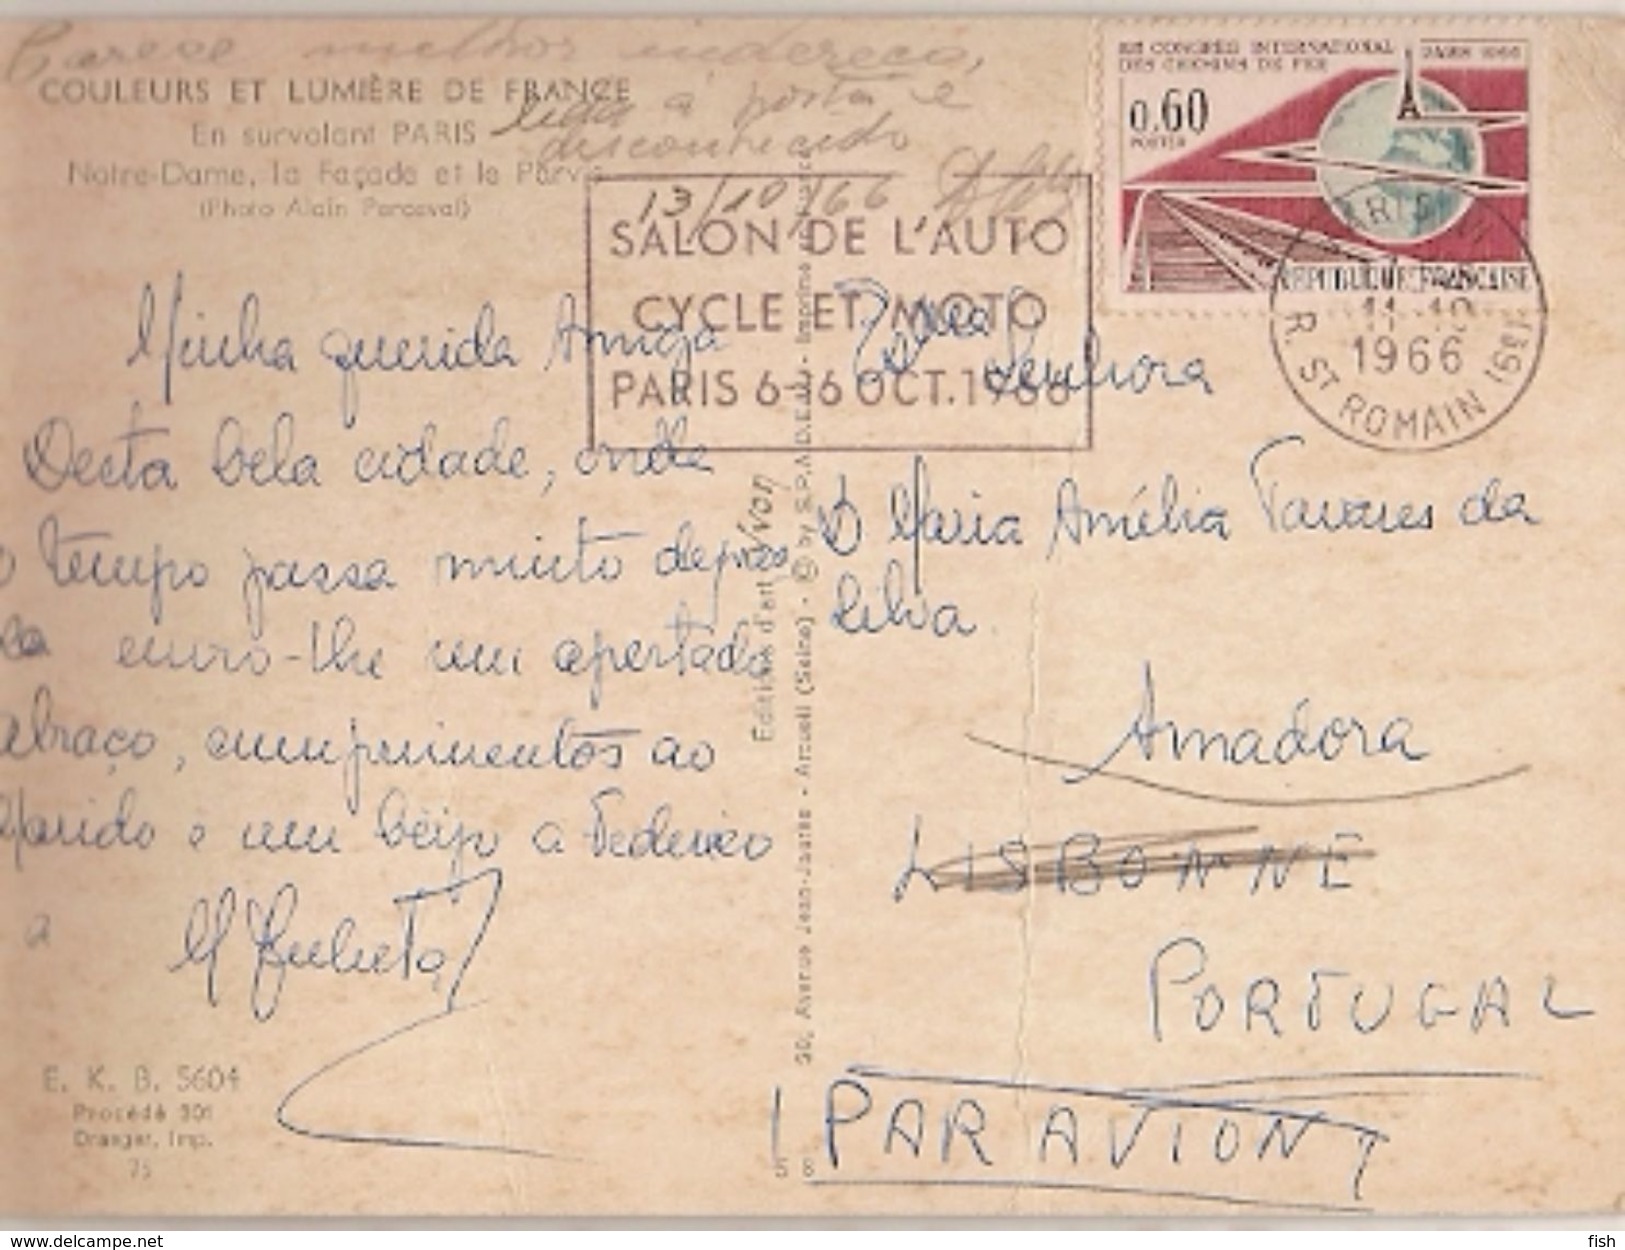 Carece melhor endereço,
á posta e
desconhecido
13/10/66
COULEURS ET LUMIÈRE DE FRANCE
En survolant PARIS
Notre-Dame, la Façade et le Parvis
(Photo Alain Perceval)
SALON DE L'AUTO
CYCLE ET MOTO
PARIS 6-16 OCT. 1966
XIXe CONGRÈS INTERNATIONAL
DES CHEMINS DE FER
PARIS 1966
0,60
POSTES
REPUBLIQUE FRANÇAISE
PARIS
11-10
1966
R. ST ROMAIN (6e)
Minha querida Amiga
Desta bela cidade, onde
o tempo passa muito depres
sa envio-lhe um apertado
abraço, cumprimentos ao
Marido e um beijo a Federico
a
M Julieta
E. K. B. 5604
Procédé 301
Draeger, Imp.
75
Editions d'art Yvon
50, Avenue Jean-Jaurès - Arcueil (Seine) - © by S.P.A.D.E.M. - Imprimé en France
Senhora
D Maria Amélia Tavares da
Silva.
Amadora
LISBONNE
PORTUGAL
PAR AVION
www.delcampe.net
fish